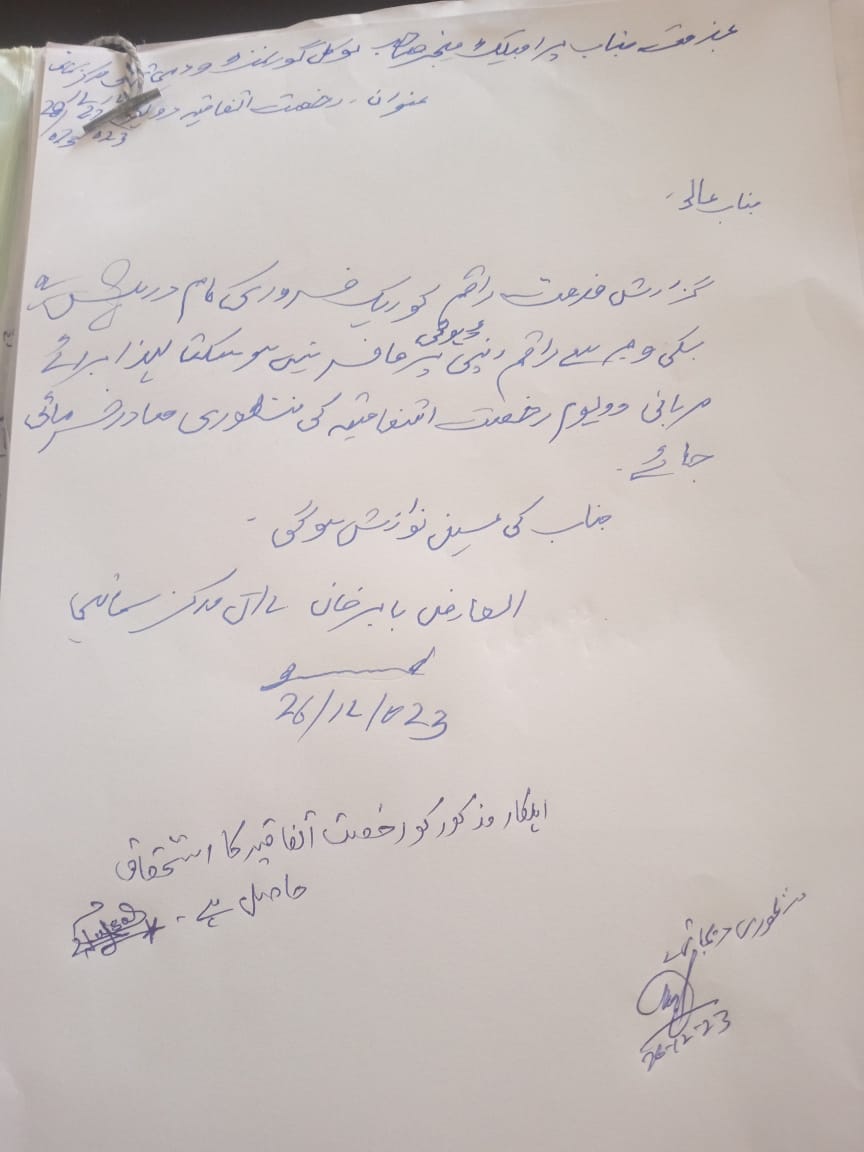 بخدمت جناب پراجیکٹ منیجر صاحب لوکل گورنمنٹ و دیہی ترقی مرکز
عنوان۔ رخصت اتفاقیہ دویوم
28/12/023 27
جناب عالی۔
گزارش خدمت راقم کو ایک ضروری کام درپیش ہے
جسکی وجہ سے راقم اپنی ڈیوٹی پر حاضر نہیں ہو سکتا لہذا برائے
مہربانی دویوم رخصت اتفاقیہ کی منظوری صادر فرمائی
جائے۔
جناب کی عین نوازش ہوگی۔
العارض بابر خان مرکز سماہنی
26/12/023
اہلکار مذکور کو رخصت اتفاقیہ کا استحقاق
حاصل ہے۔
منظوری دیجاتی ہے
26-12-23